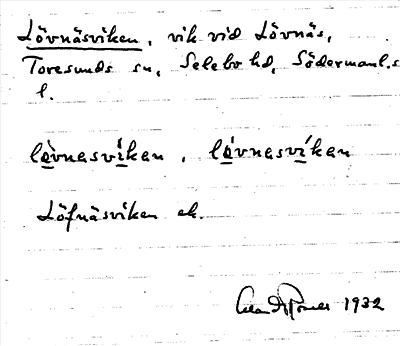 Lövnäsviken, vik vid Lövnäs,
Toresunds sn, Selebo hd, Södermanl.s
l.
lòvnesvíken, lóvnesvíken
Löfnäsviken ek.
1932